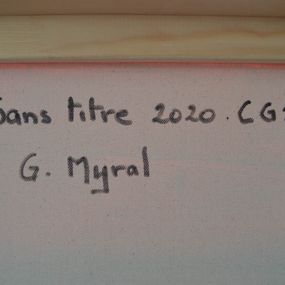 Sans titre 2020. CG
G. Myral